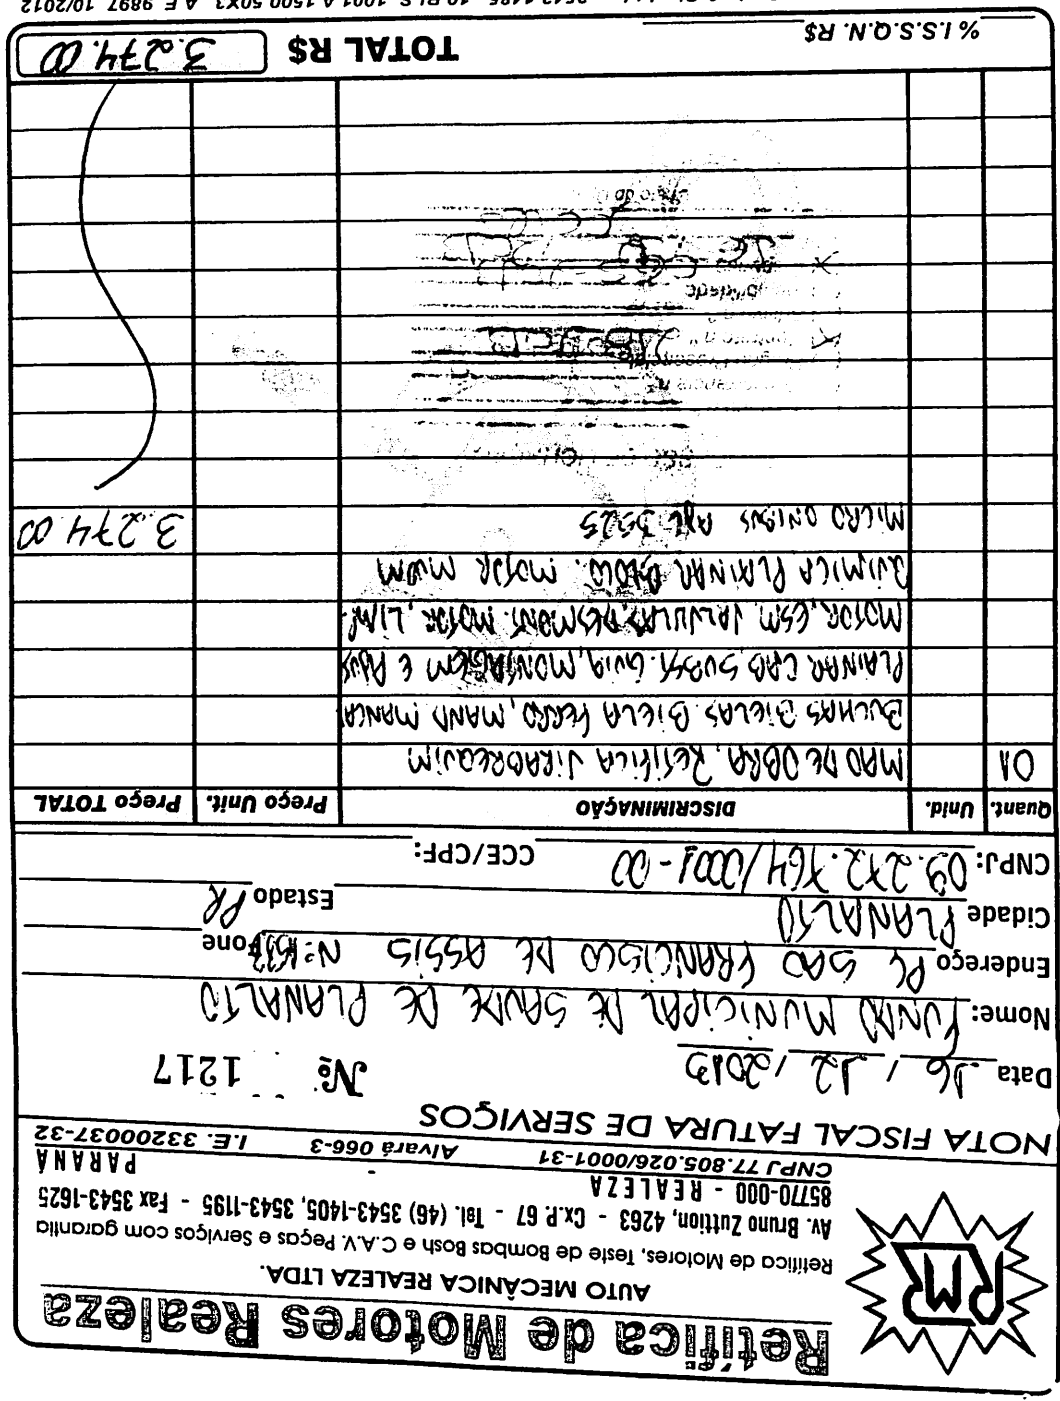 Retífica de Motores Realeza
AUTO MECÂNICA REALEZA LTDA.
Retífica de Motores, Teste de Bombas Bosh e C.A.V. Peças e Serviços com garantia
Av. Bruno Zuttion, 4263 - Cx.P. 67 - Tel. (46) 3543-1405, 3543-1195 - Fax 3543-1625
85770-000 - REALEZA PARANÁ
CNPJ 77.805.026/0001-31 Alvará 066-3 I.E. 33200037-32
NOTA FISCAL FATURA DE SERVIÇOS
Data 16 / 12 / 2013 Nº 1217
Nome: FUNDO MUNICIPAL DE SAUDE DE PLANALTO
Endereço PÇ SAO FRANCISCO DE ASSIS Nº 1533 Fone
Cidade PLANALTO Estado PR
CNPJ: 09.272.764/0001-00 CCE/CPF:
Quant. Unid. DISCRIMINAÇÃO Preço Unit. Preço TOTAL
01 MAO DE OBRA, RETIFICA VIRABREQUIM
BUCHAS BIELAS BIELA FERRO, MAND MANCA
PLAINAR CAB SUBST. GUIA, MONTAGEM E AJUS
MOTOR, ESM. VALVULAS, DESMONT. MOTOR, LIMP.
QUIMICA PLAINAR BLOCO. MOTOR MWM
MICRO ONIBUS 3.274 00
% I.S.S.Q.N. R$ TOTAL R$ 3.274.00